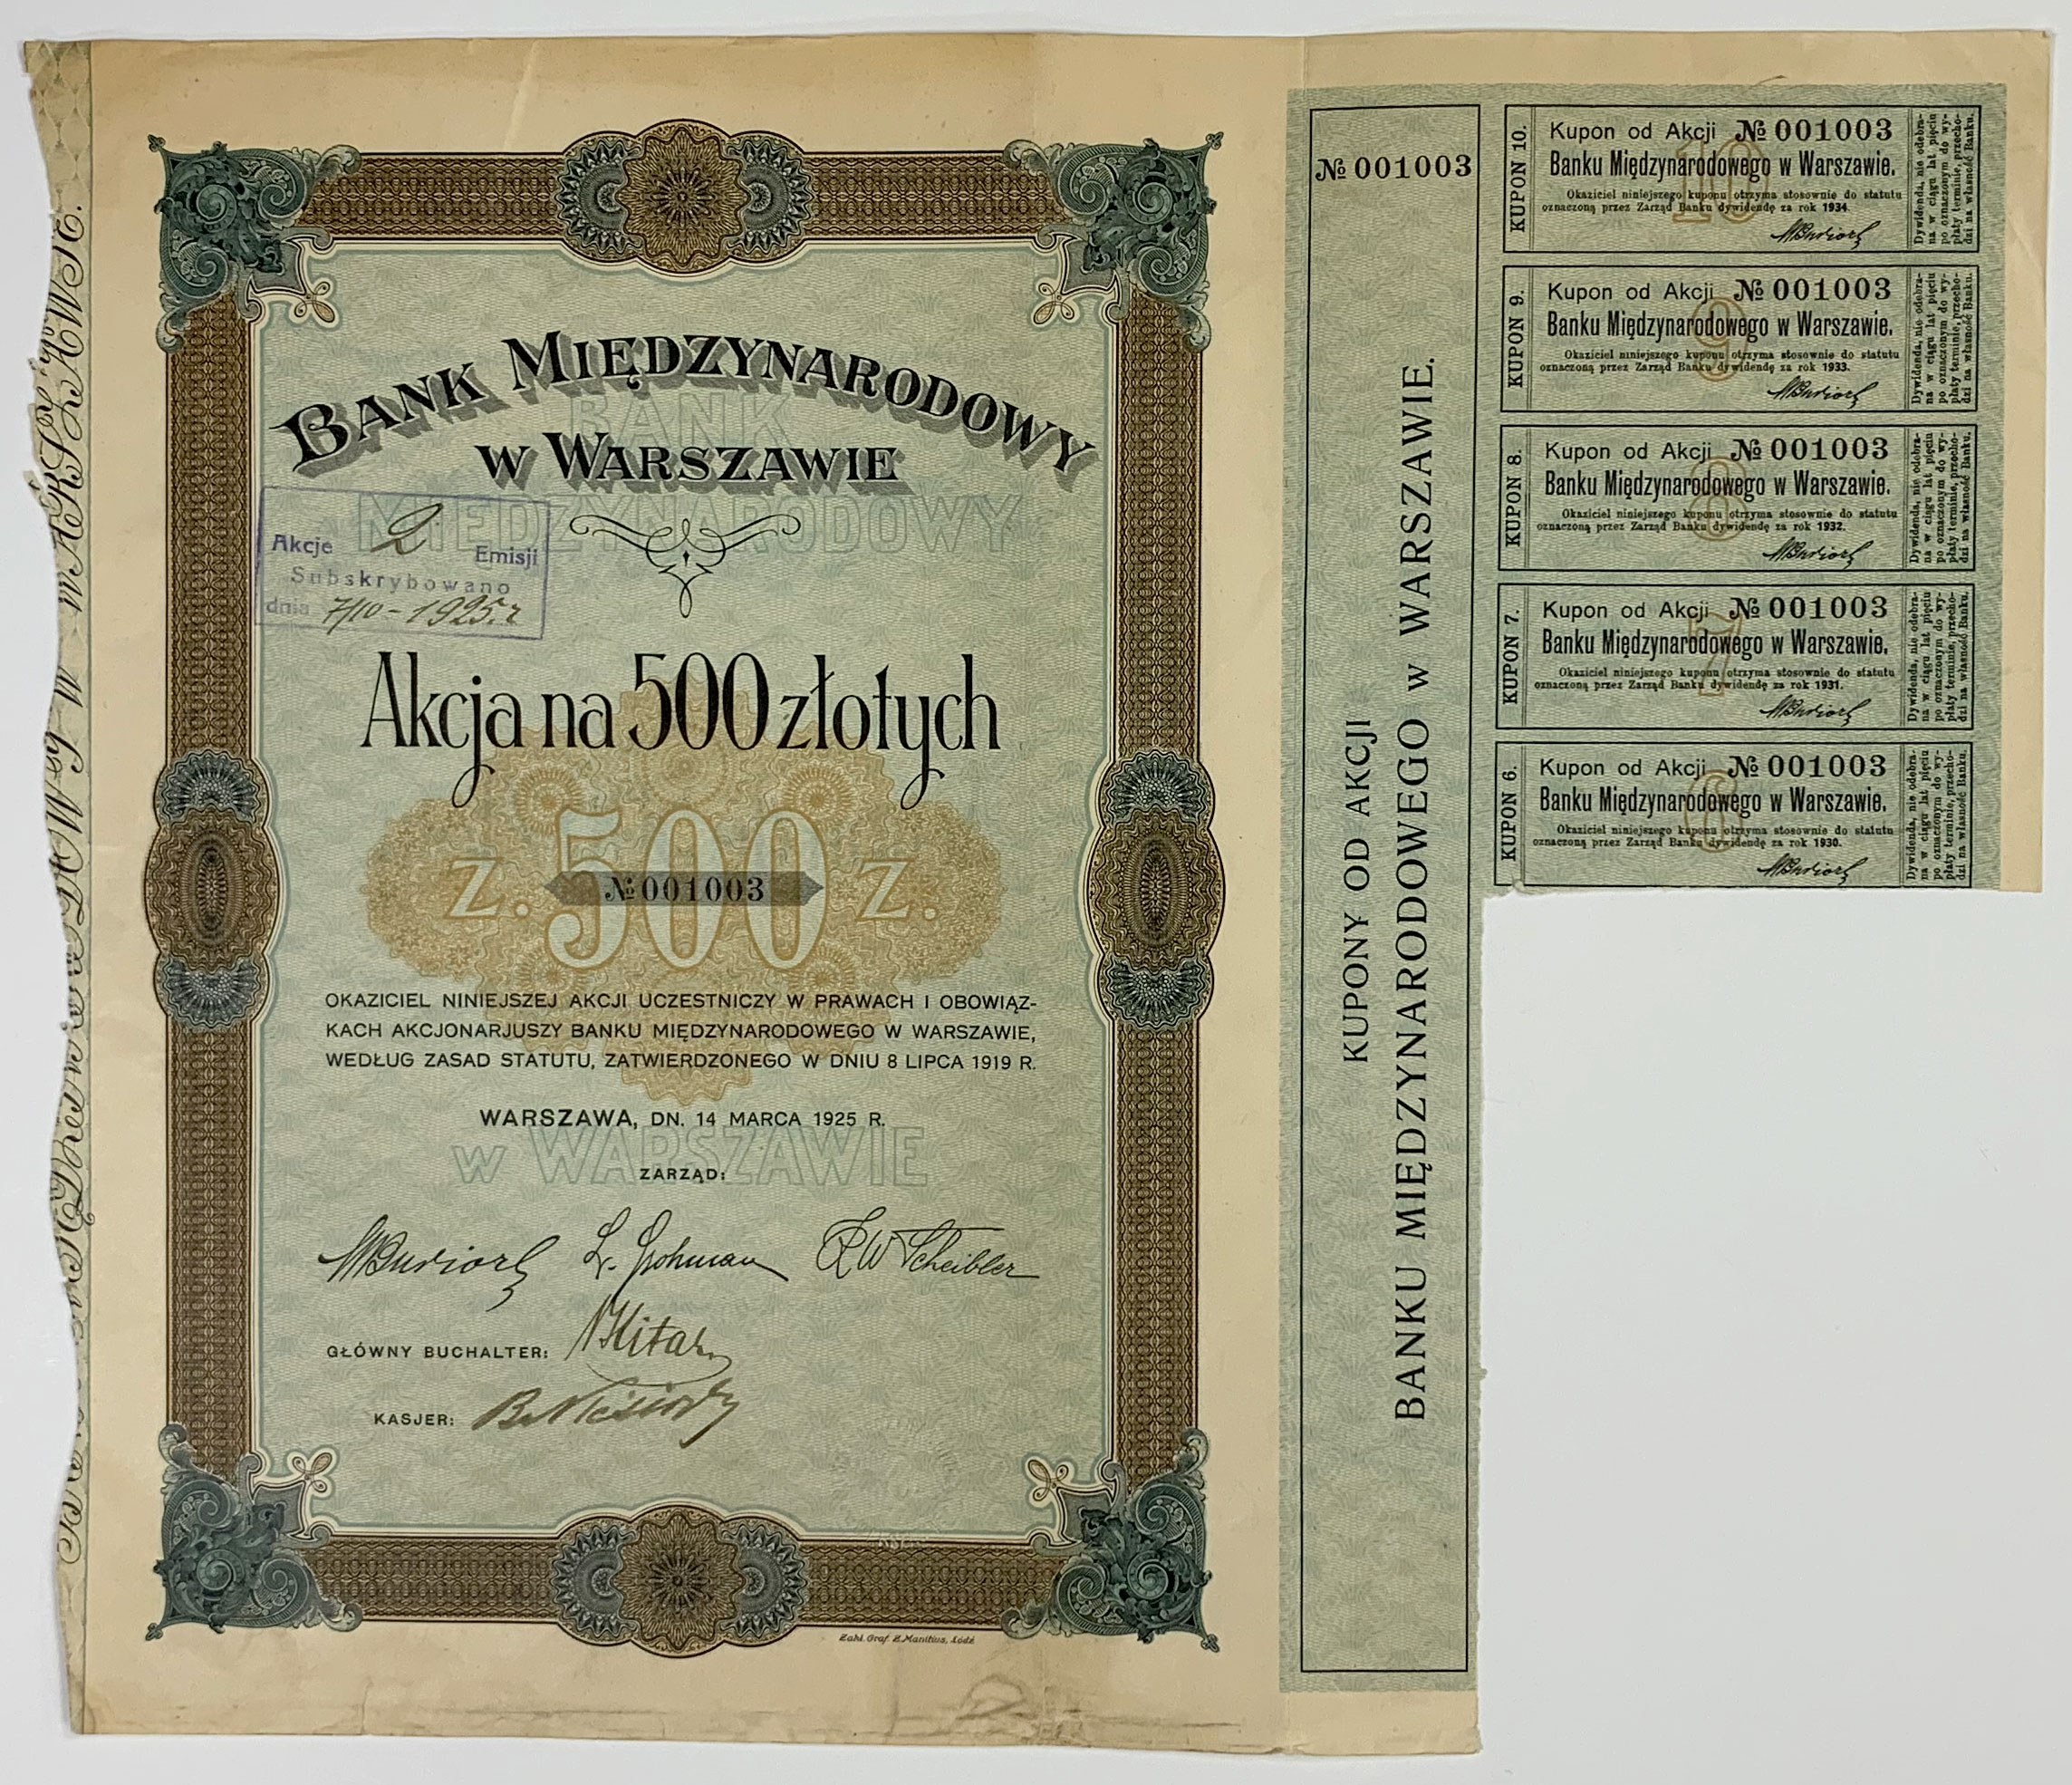 BANK MIĘDZYNARODOWY
W WARSZAWIE
BANK
MIĘDZYNARODOWY
Akcje 2 Emisji
Subskrybowano
dnia 7/10 - 1925 r
Akcja na 500 złotych
Z. 500 Z.
№ 001003
OKAZICIEL NINIEJSZEJ AKCJI UCZESTNICZY W PRAWACH I OBOWIĄZ-
KACH AKCJONARJUSZY BANKU MIĘDZYNARODOWEGO W WARSZAWIE,
WEDŁUG ZASAD STATUTU, ZATWIERDZONEGO W DNIU 8 LIPCA 1919 R.
WARSZAWA, DN. 14 MARCA 1925 R.
W WARSZAWIE
ZARZĄD:
L. Grohman RW Scheibler
GŁÓWNY BUCHALTER:
KASJER:
Zakł. Graf. B. Manitius, Łódź
№ 001003
KUPONY OD AKCJI
BANKU MIĘDZYNARODOWEGO W WARSZAWIE.
KUPON 10.
10
Kupon od Akcji № 001003
Banku Międzynarodowego w Warszawie.
Okaziciel niniejszego kuponu otrzyma stosownie do statutu
oznaczoną przez Zarząd Banku dywidendę za rok 1934
Dywidenda, nie odebra-
na w ciągu lat pięciu
po oznaczonym do wy-
płaty terminie, przecho-
dzi na własność Banku.
KUPON 9.
9
Kupon od Akcji № 001003
Banku Międzynarodowego w Warszawie.
Okaziciel niniejszego kuponu otrzyma stosownie do statutu
oznaczoną przez Zarząd Banku dywidendę za rok 1933.
Dywidenda, nie odebra-
na w ciągu lat pięciu
po oznaczonym do wy-
płaty terminie, przecho-
dzi na własność Banku.
KUPON 8.
8
Kupon od Akcji № 001003
Banku Międzynarodowego w Warszawie.
Okaziciel niniejszego kuponu otrzyma stosownie do statutu
oznaczoną przez Zarząd Banku dywidendę za rok 1932.
Dywidenda, nie odebra-
na w ciągu lat pięciu
po oznaczonym do wy-
płaty terminie, przecho-
dzi na własność Banku.
KUPON 7.
7
Kupon od Akcji № 001003
Banku Międzynarodowego w Warszawie.
Okaziciel niniejszego kuponu otrzyma stosownie do statutu
oznaczoną przez Zarząd Banku dywidendę za rok 1931.
Dywidenda, nie odebra-
na w ciągu lat pięciu
po oznaczonym do wy-
płaty terminie, przecho-
dzi na własność Banku.
KUPON 6.
6
Kupon od Akcji № 001003
Banku Międzynarodowego w Warszawie.
Okaziciel niniejszego kuponu otrzyma stosownie do statutu
oznaczoną przez Zarząd Banku dywidendę za rok 1930.
Dywidenda, nie odebra-
na w ciągu lat pięciu
po oznaczonym do wy-
płaty terminie, przecho-
dzi na własność Banku.